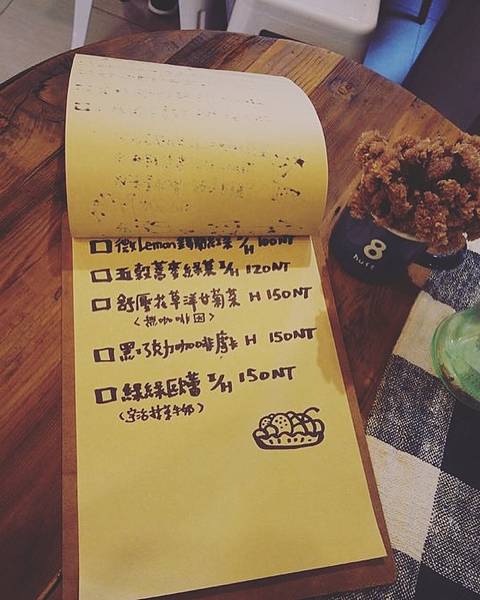 微Lemon錫蘭紅茶 I/H 100NT
五穀蕎麥綠茶 I/H 120NT
舒壓花草洋甘菊茶 H 150NT
(無咖啡因)
黑巧克力咖啡摩卡 H 150NT
綠綠歐蕾 I/H 150NT
(宇治抹茶牛奶)
8